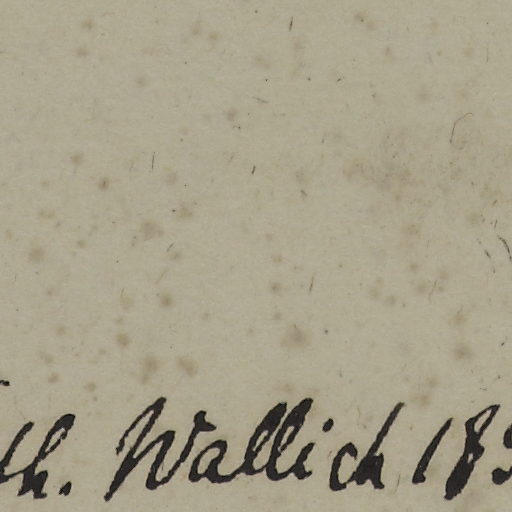 th. Wallich 18